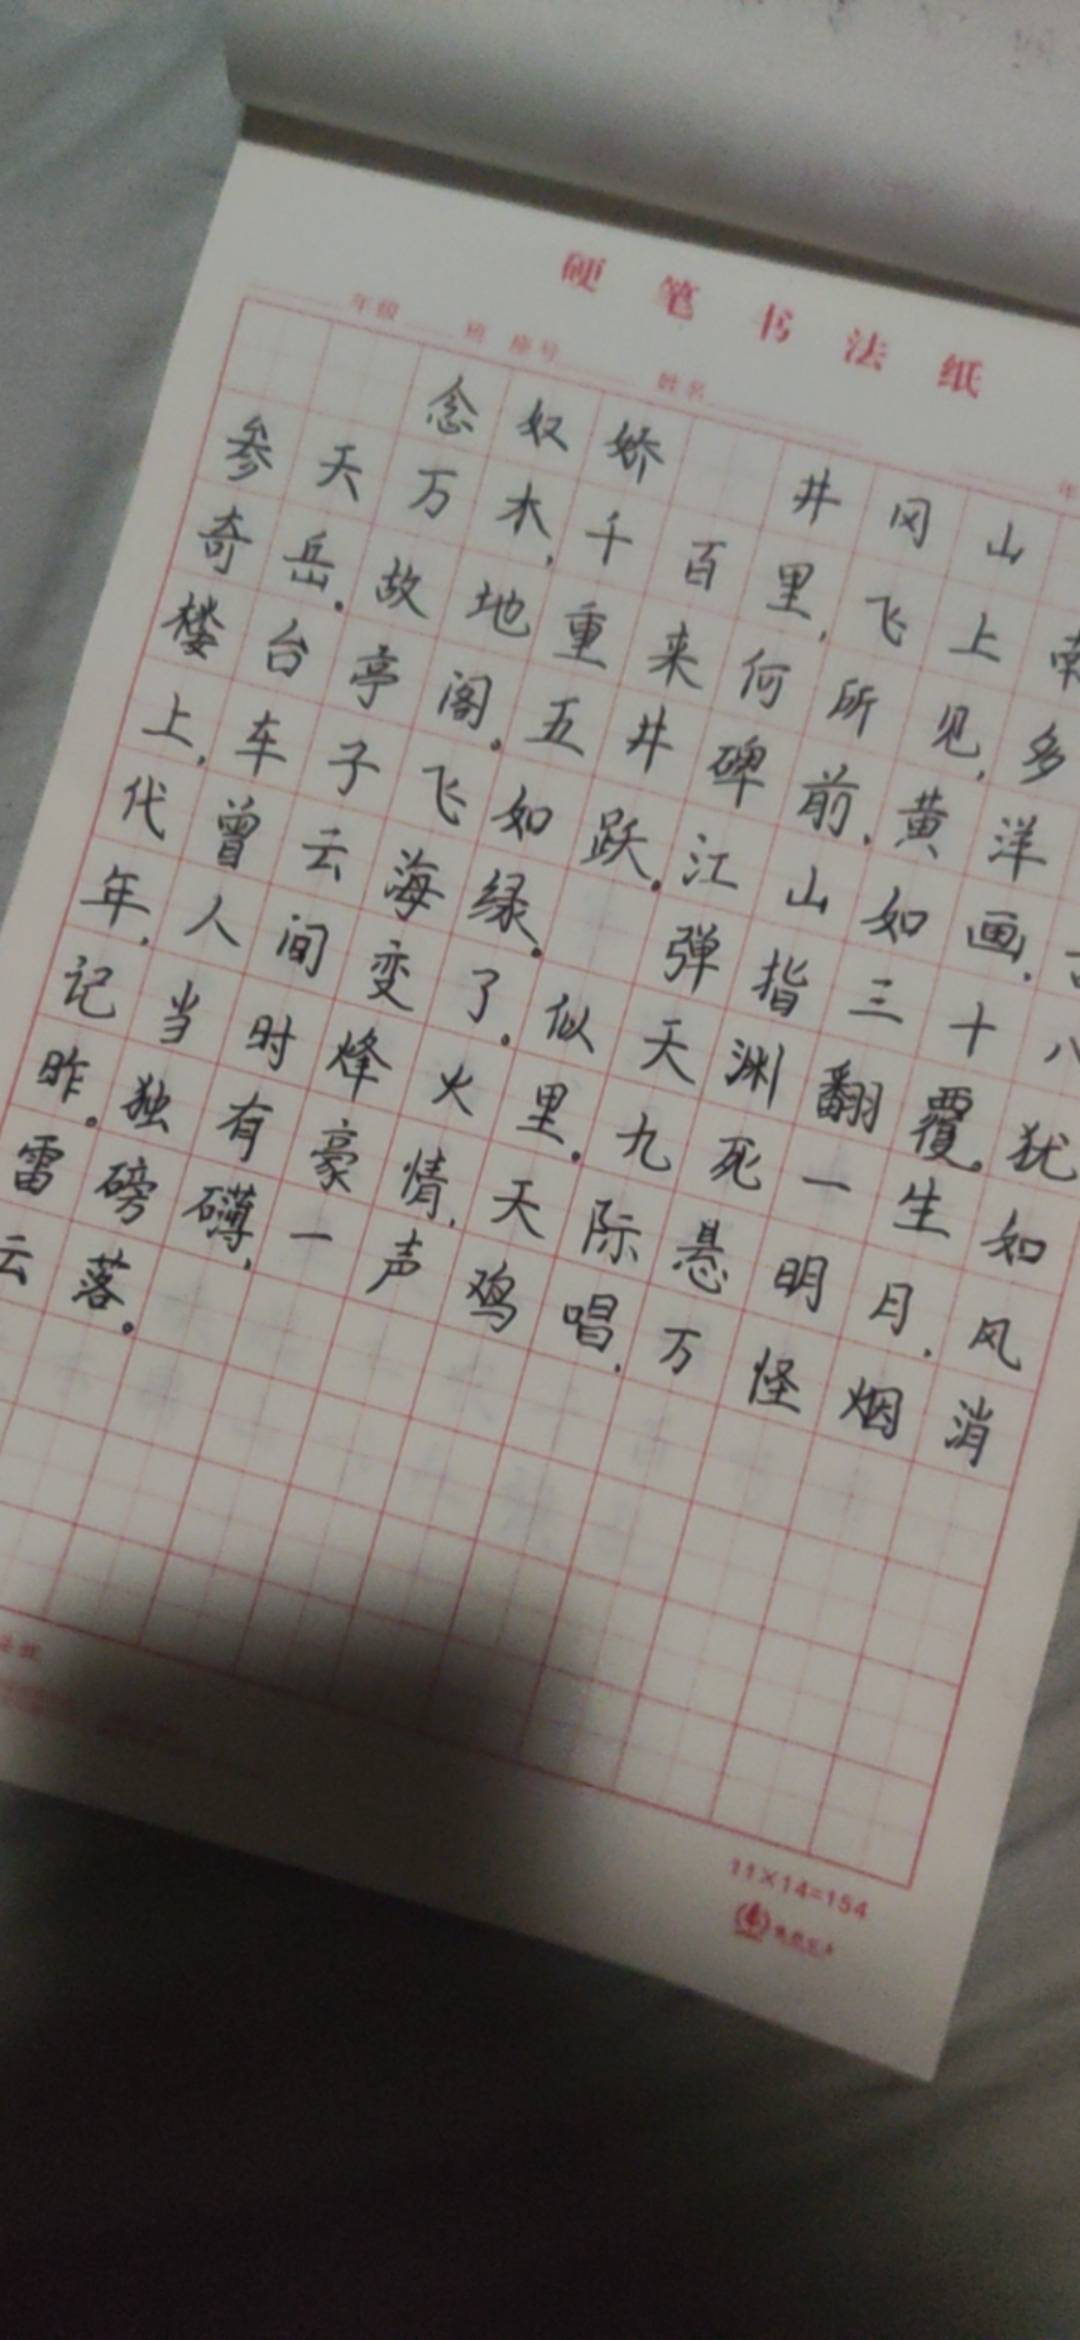 硬笔书法纸
年级 班 座号 姓名
念奴娇 井冈山
参天万木,千百里,飞上南
奇岳。故地重来何所见,多
楼台亭阁。五井碑前,黄洋
上,车子飞如跃。江山如画,
代曾云海绿。 弹指三十八
年,人间变了。似天渊翻覆。犹
记当时烽火里。九死一生如
昨。独有豪情,天际悬明月,风
雷磅礴,一声鸡唱,万怪烟消
云落。
11×14=154